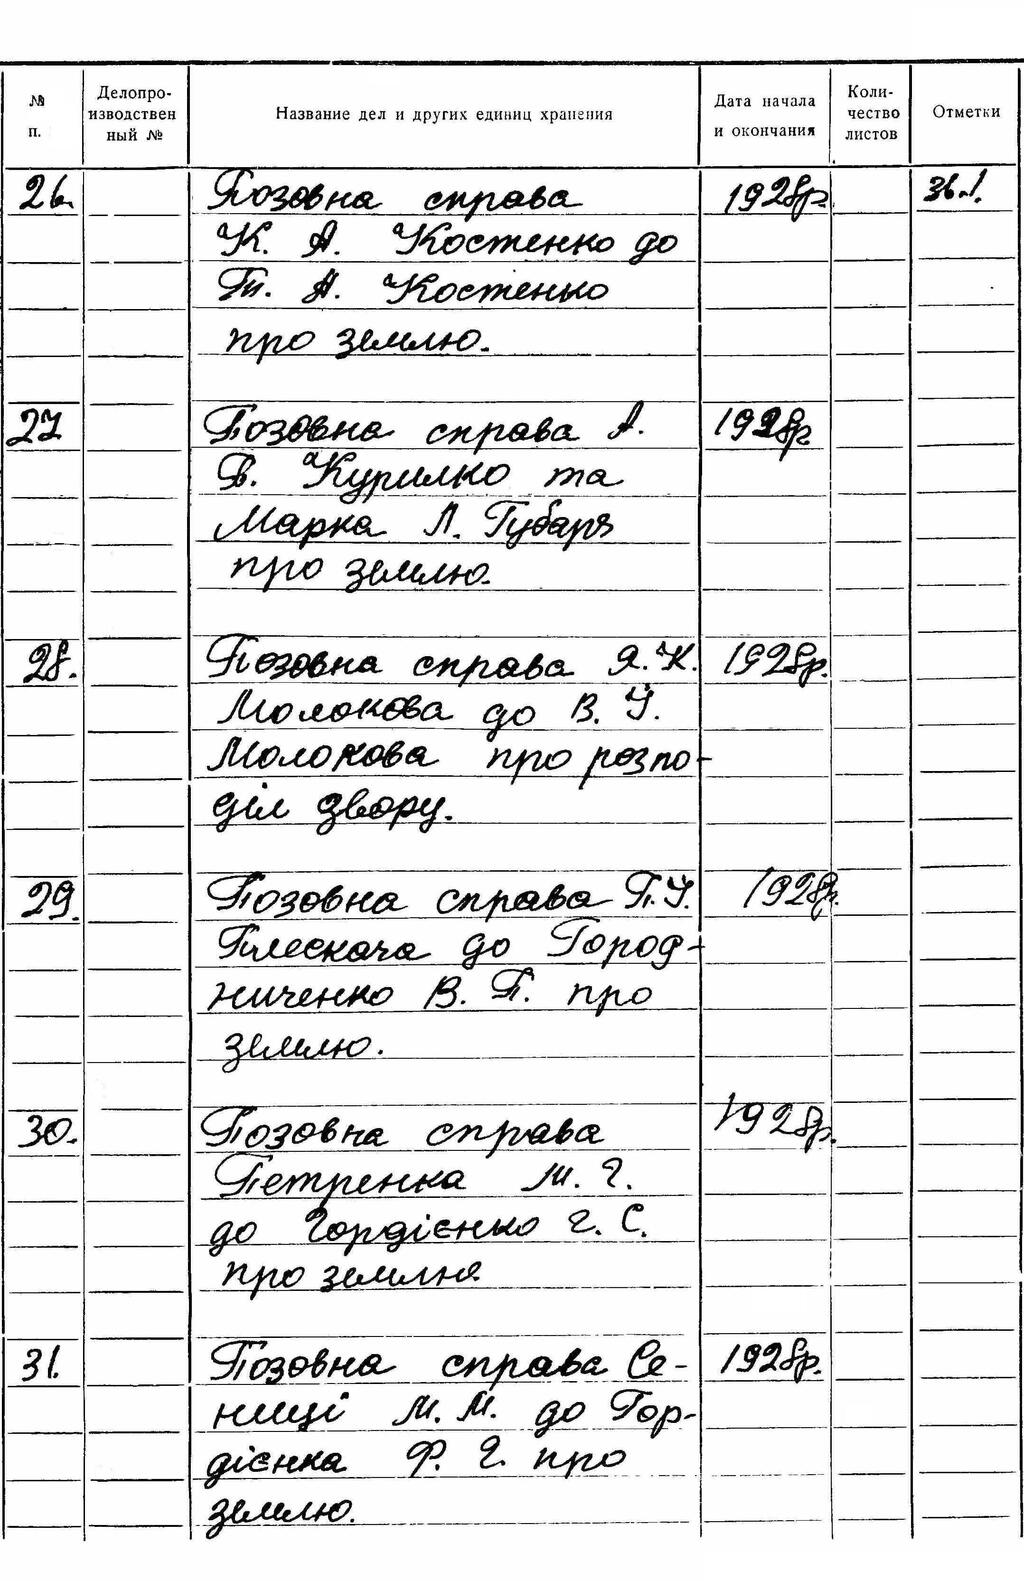 №
п.
Делопро-
изводствен
ный №
Название дел и других единиц хранения
Дата начала
и окончания
Коли-
чество
листов
Отметки
26. Позовна справа 1928р.
К. А. Костенко до
Т. А. Костенко
про землю.
27 Позовна справа А. 1928р
В. Курилко та
Марка Л. Губаря
про землю.
28. Позовна справа Я. К. 1928р.
Молокова до В. У.
Молокова про розпо-
діл двору.
29. Позовна справа П. У. 1928р.
Плескача до Город-
ниченко В. П. про
землю.
30. Позовна справа 1928р.
Петренка М. Г.
до Гордієнко Г. С.
про землю
31. Позовна справа Се- 1928р.
ниці М. М. до Гор-
дієнка Ф. Г. про
землю.